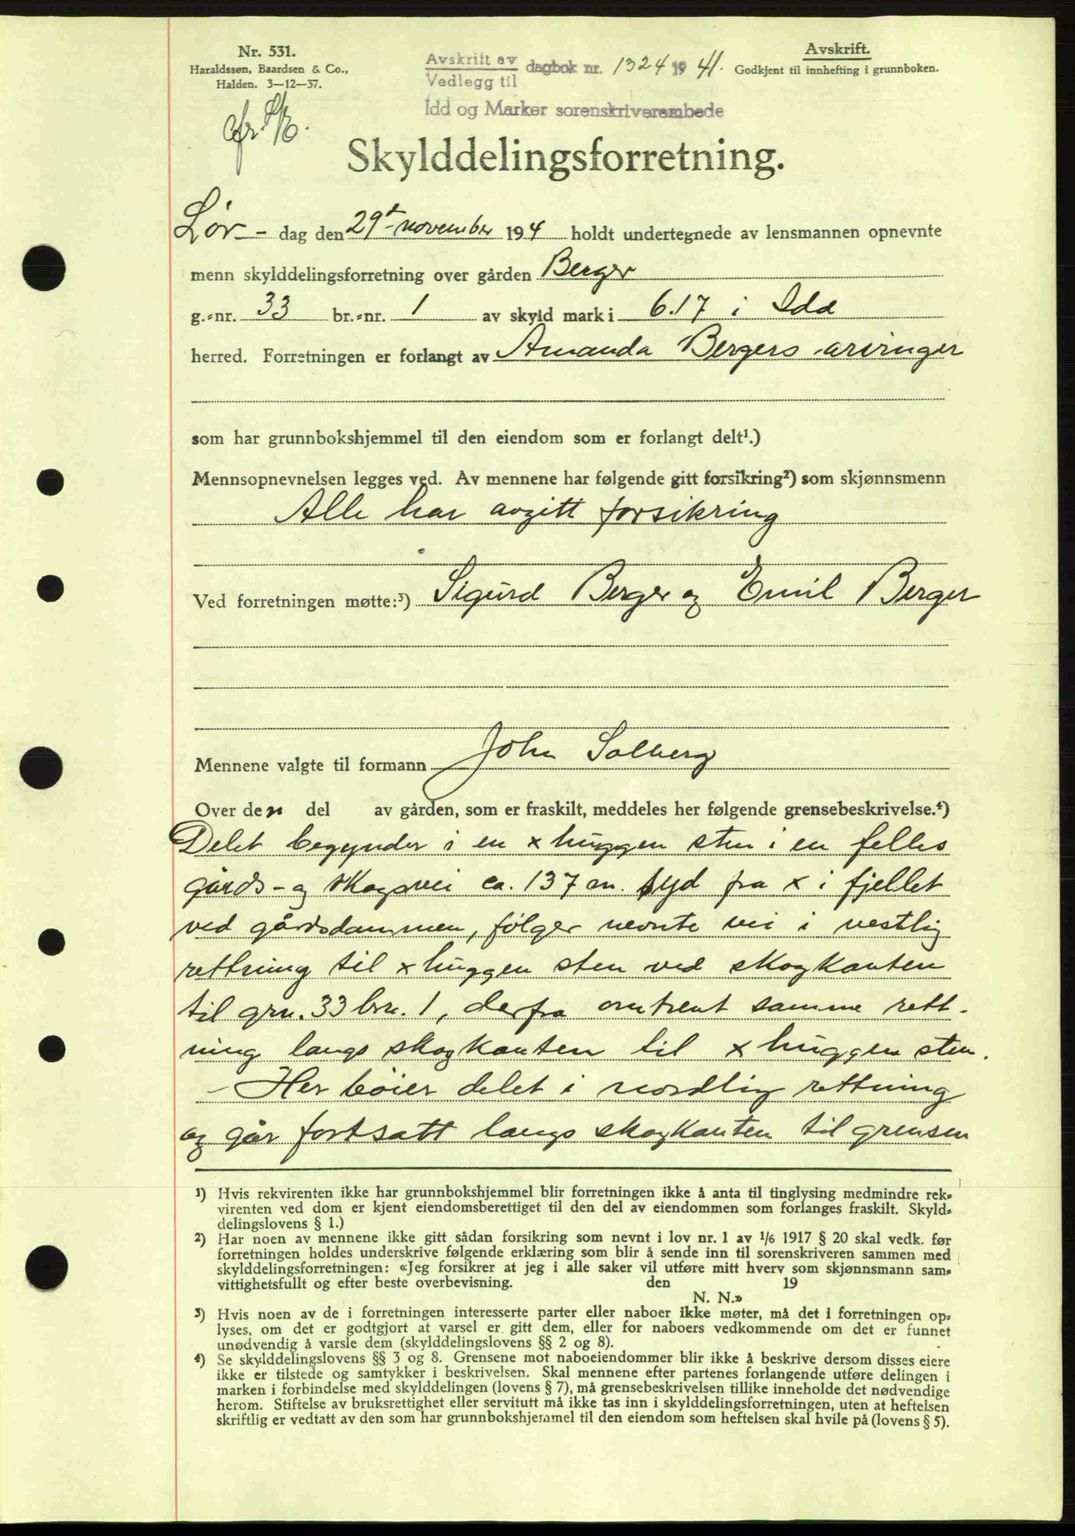 Nr. 531.
Haraldssen, Baardsen & Co.,
Halden. 3—12—37.
Avskrift av
Vedlegg til
dagbok nr. 1324 19 41.
Idd og Marker sorenskriverembede
Avskrift.
Godkjent til innhefting i grunnboken.
Skylddelingsforretning.
Lør- dag den 29de november 194 holdt undertegnede av lensmannen opnevnte
menn skylddelingsforretning over gården Berger
g.-nr. 33 br.-nr. 1 av skyld mark i 6.17 i Idd
herred. Forretningen er forlangt av Amanda Bergers arvinger
som har grunnbokshjemmel til den eiendom som er forlangt delt¹.)
Mennsopnevnelsen legges ved. Av mennene har følgende gitt forsikring²) som skjønnsmenn
Alle har avgitt forsikring
Ved forretningen møtte:³) Sigurd Berger og Emil Berger
Mennene valgte til formann John Solberg
Over den del av gården, som er fraskilt, meddeles her følgende grensebeskrivelse.⁴)
Delet begynder i en x huggen sten i en felles
gårds- og skogsvei ca. 137 m. syd fra x i fjellet
ved gårdsdammen, følger nevnte vei i vestlig
rettning til x huggen sten ved skogkanten
til grn. 33 brn. 1, derfra omtrent samme rett-
ning langs skogkanten til x huggen sten.
- Her bøier delet i nordlig rettning
og går fortsatt langs skogkanten til grensen
¹) Hvis rekvirenten ikke har grunnbokshjemmel blir forretningen ikke å anta til tinglysing medmindre rek-
virenten ved dom er kjent eiendomsberettiget til den del av eiendommen som forlanges fraskilt. Skyld-
delingslovens § 1.)
²) Har noen av mennene ikke gitt sådan forsikring som nevnt i lov nr. 1 av ¹/₆ 1917 § 20 skal vedk. før
forretningen holdes underskrive følgende erklæring som blir å sende inn til sorenskriveren sammen med
skylddelingsforretningen: «Jeg forsikrer at jeg i alle saker vil utføre mitt hverv som skjønnsmann sam-
vittighetsfullt og efter beste overbevisning. den 19
N. N.»
³) Hvis noen av de i forretningen interesserte parter eller naboer ikke møter, må det i forretningen op-
lyses, om det er godtgjort at varsel er gitt dem, eller for naboers vedkommende om det er funnet
unødvendig å varsle dem (skylddelingslovens §§ 2 og 8).
⁴) Se skylddelingslovens §§ 3 og 8. Grensene mot naboeiendommer blir ikke å beskrive dersom disses eiere
ikke er tilstede og samtykker i beskrivelsen. Skal mennene efter partenes forlangende utføre delingen i
marken i forbindelse med skylddelingen (lovens § 7), må grensebeskrivelsen tillike inneholde det nødvendige
herom. Stiftelse av bruksrettighet eller servitutt må ikke tas inn i skylddelingsforretningen, uten at heftelsen
skriftlig er vedtatt av den som har grunnbokshjemmel til den eiendom som heftelsen skal hvile på (lovens § 5).